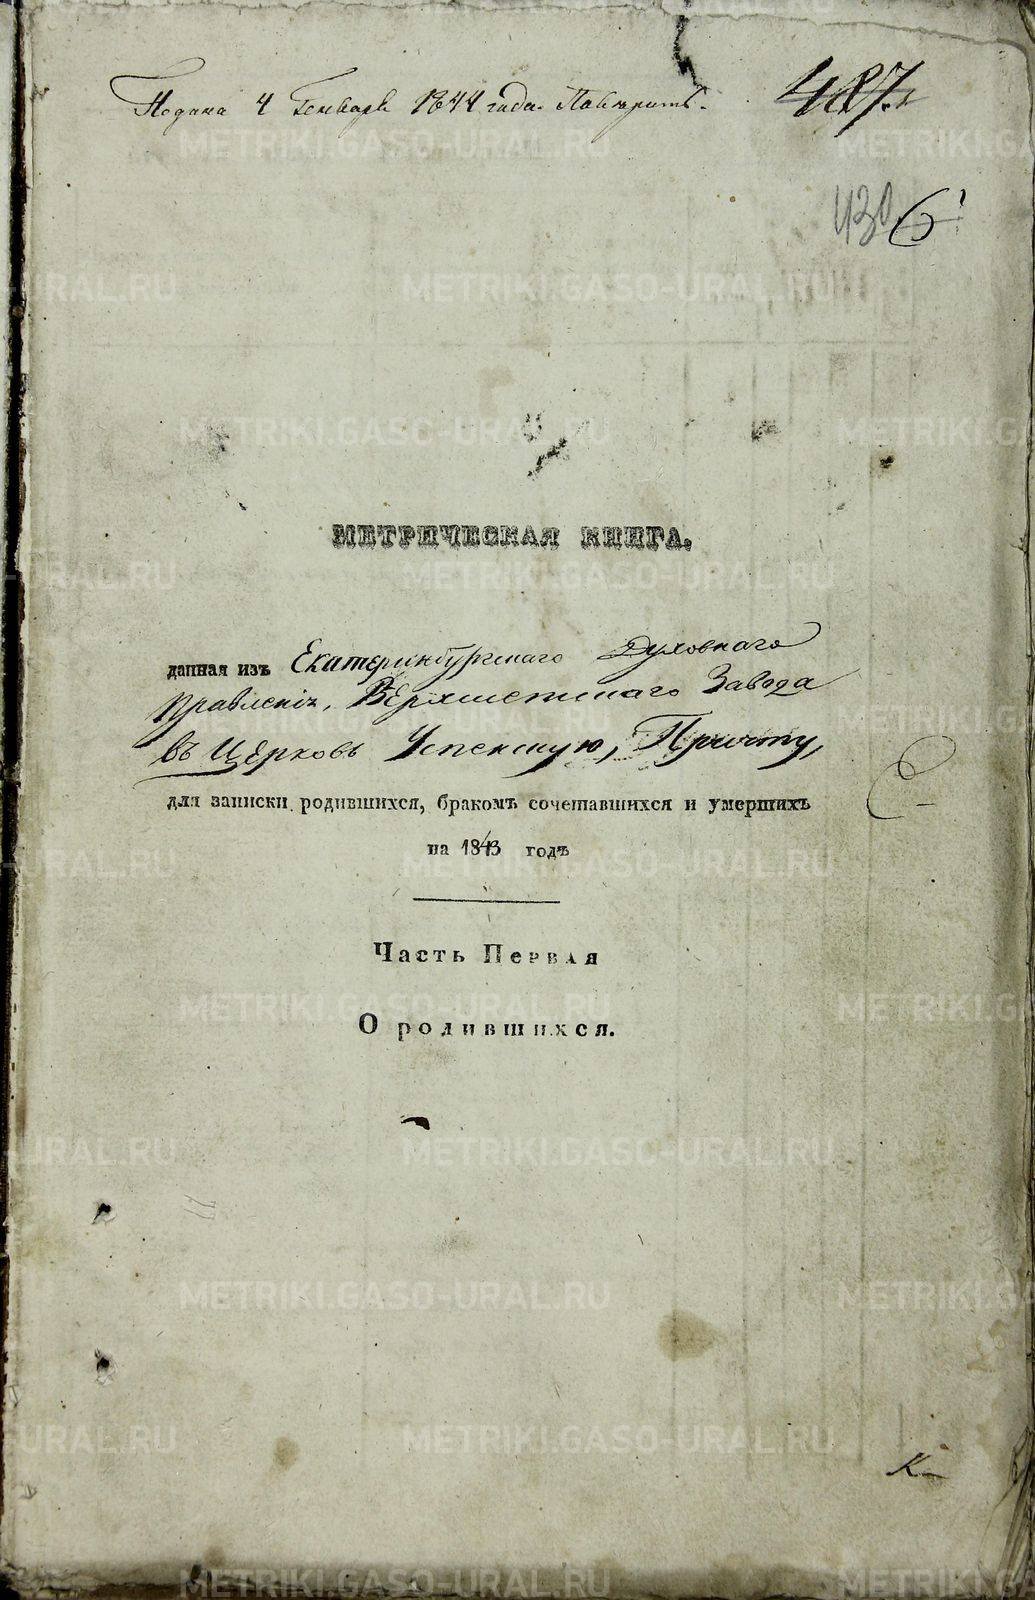 Подана 4 Генваря 1844 года. Повѣрить.
487.
430 6
МЕТРИЧЕСКАЯ КНИГА.
данная изъ Екатеринбургскаго Духовнаго
Правленія, Верхисетскаго Завода
въ Церковь Успенскую, Причту,
для записки родившихся, бракомъ сочетавшихся и умершихъ
на 1843 годъ
Часть Первая
О родившихся.
К
METRIKI.GASO-URAL.RU